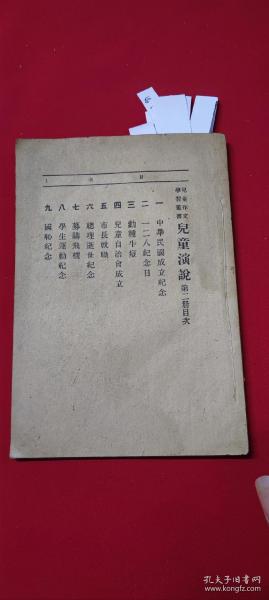 目次
1
兒童作文
學習叢書
兒童演說 第二冊目次
一 中華民國成立紀念
二 一二八紀念日
三 勸種牛痘
四 兒童自治會成立
五 市長就職
六 總理逝世紀念
七 募購飛機
八 學生運動紀念
九 國恥紀念
孔夫子旧书网
www.kongfz.com